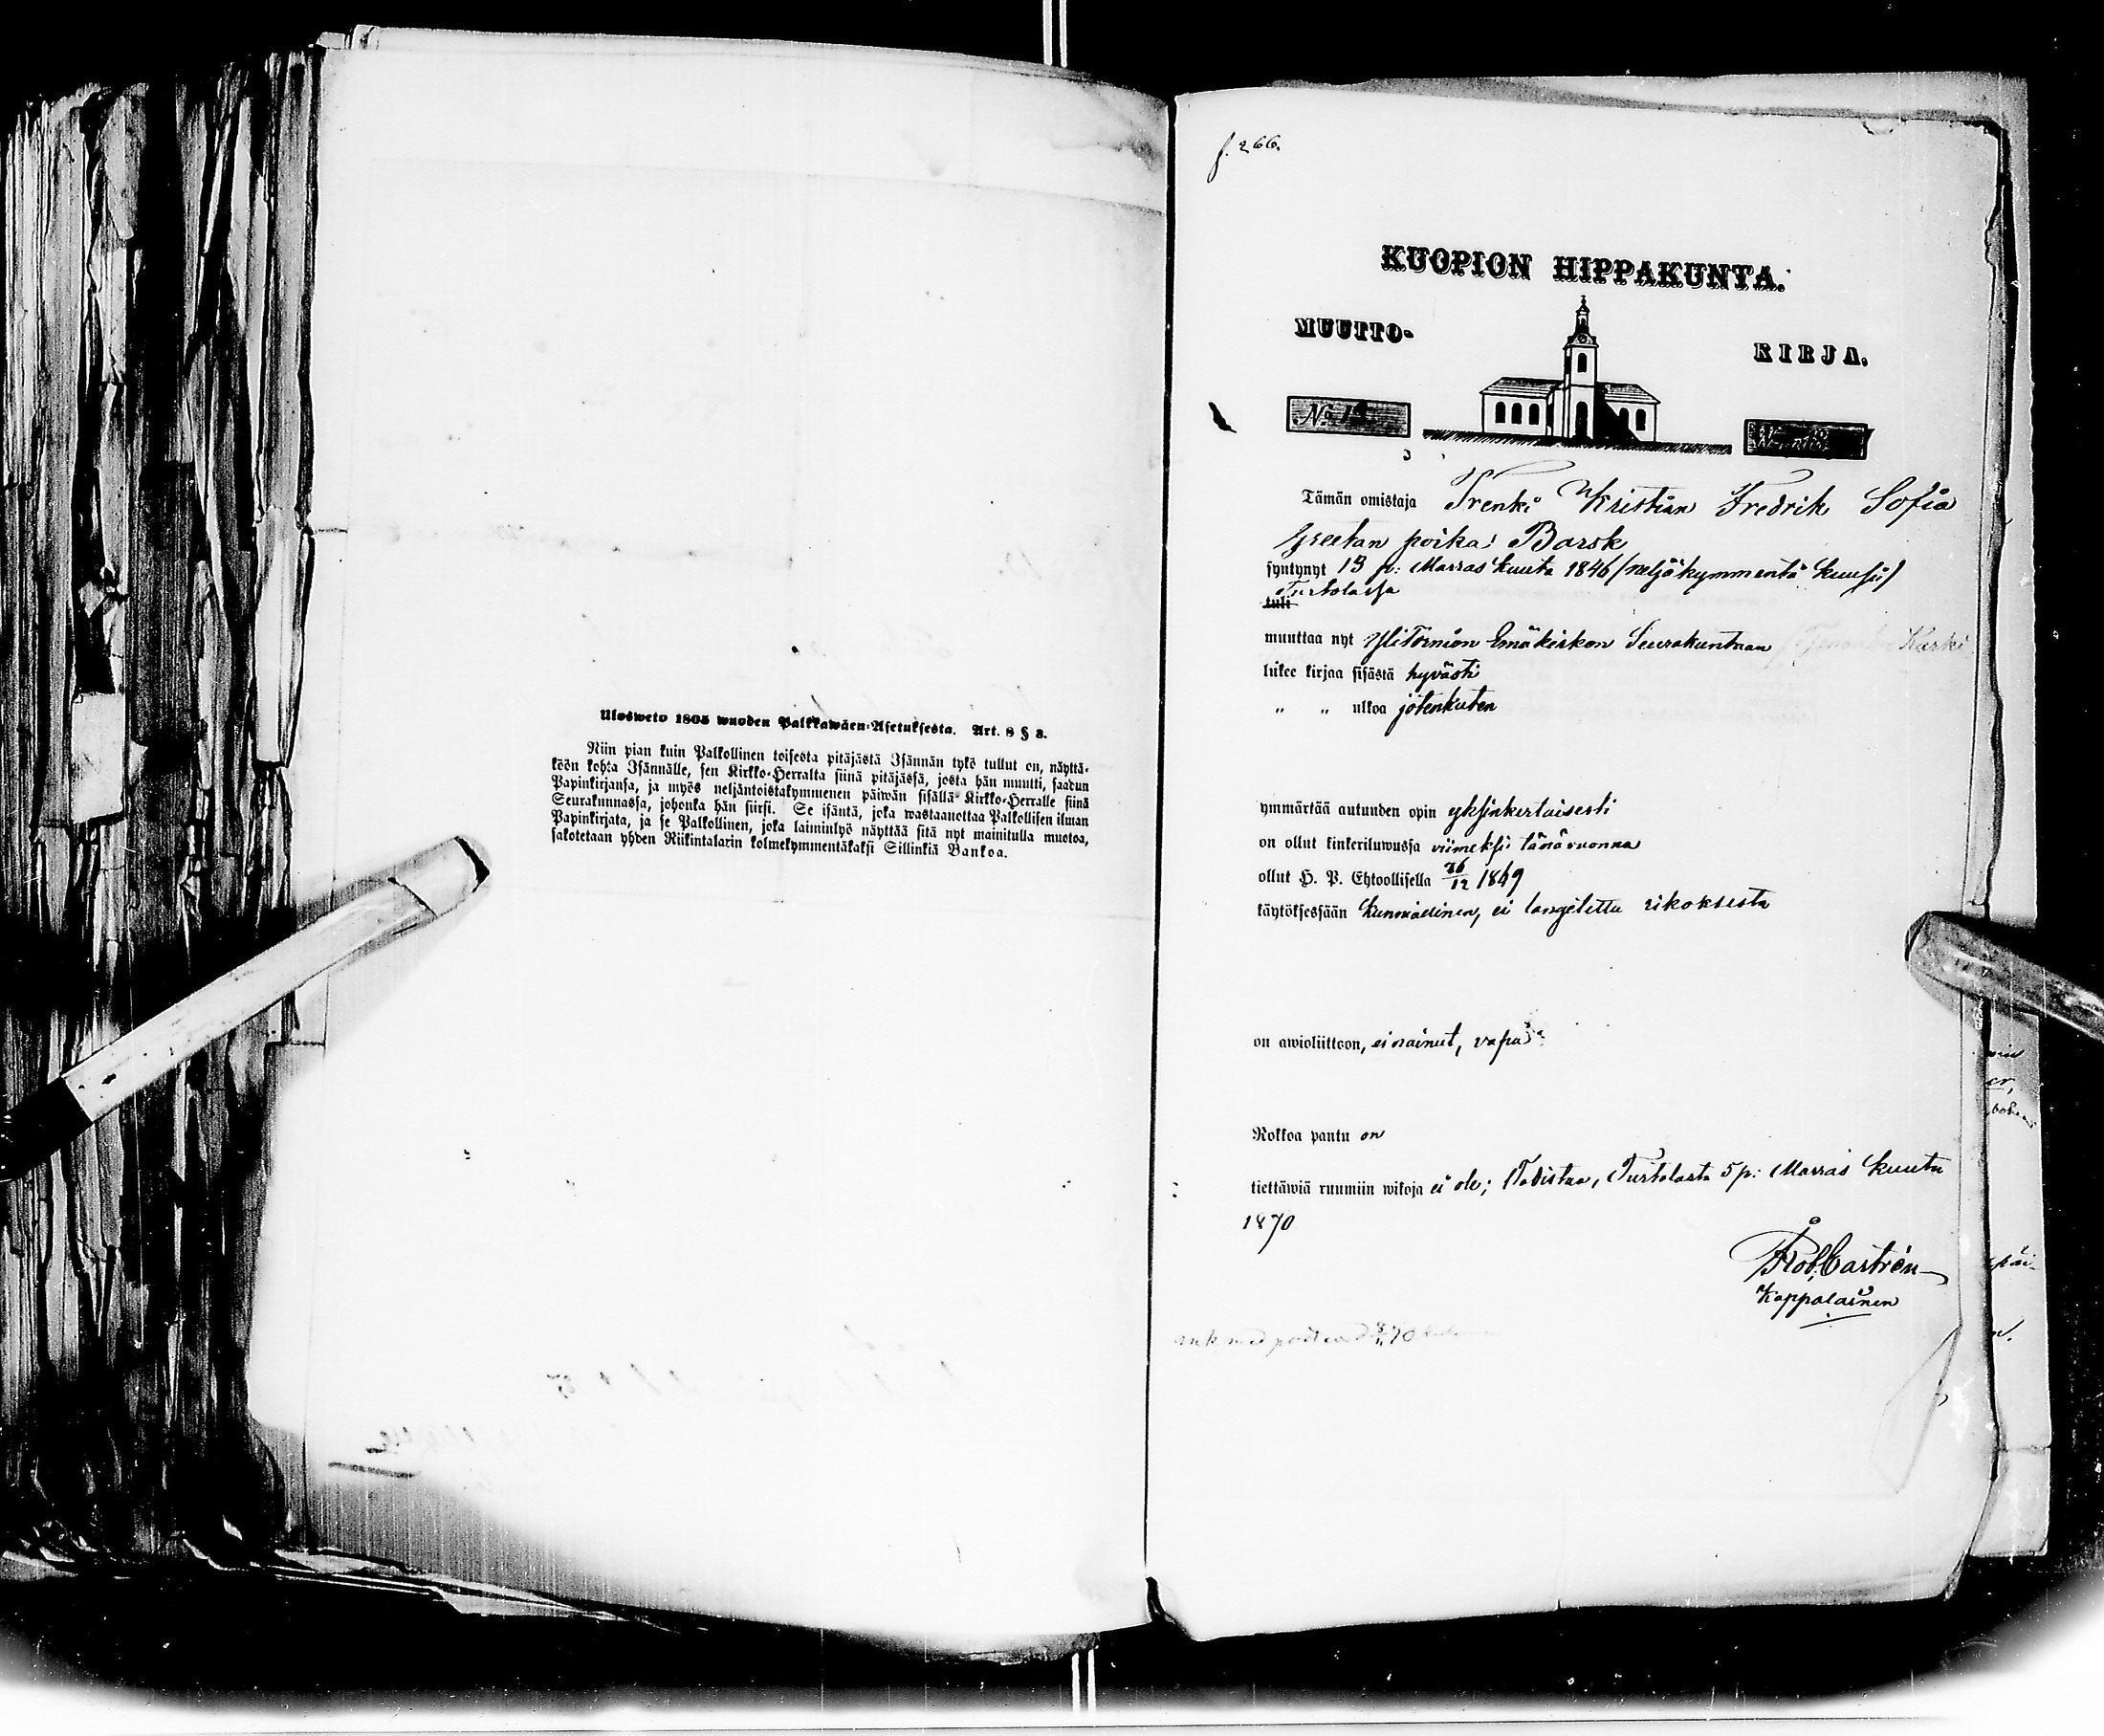 Ulosweto 1805 wuoden Palkkawäen-Asetuksesta. Art. 8 § 3.
Niin pian kuin Palkollinen toisesta pitäjästä Isännän tykö tullut on, näyttä-
köön kohta Isännälle, sen Kirkko-Herralta siinä pitäjässä, josta hän muutti, saadun
Papinkirjansa, ja myös neljäntoistakymmenen päiwän sisällä Kirkko-Herralle siinä
Seurakunnassa, johonka hän siirsi. Se isäntä, joka wastaanottaa Palkollisen ilman
Papinkirjata, ja se Palkollinen, joka laiminlyö näyttää sitä nyt mainitulla muotoa,
sakotetaan yhden Riikintalarin kolmekymmentäkaksi Sillinkiä Bankoa.
f. 266.
KUOPION HIPPAKUNTA.
MUUTTO-
KIRJA.
No
Tämän omistaja Trenki Kristian Fredrik Sofia
Greetan poika Barsk
syntynyt 13 p: Marras kuuta 1846 /neljäkymmentä kuusi/
Turtolassa
tuli
muuttaa nyt YliTornion Emäkirkon Seurakuntaan
lukee kirjaa sisästä hyvästi
" " ulkoa jotenkuten
ymmärtää autuuden opin yksinkertaisesti
on ollut kinkeriluwussa viimeksi tänävuonna
ollut H. P. Ehtoollisella 26/12 1869
käytöksessään Kunniadinen, ei langitettu rikoksista
on awioliittoon, ei nainut, vapa
Rokkoa pantu on
tiettäwiä ruumiin wikoja ei ole; Todistaa, Turtolasta 5 p: Marras kuuta
1870
Rob. Castrén
Kappalainen